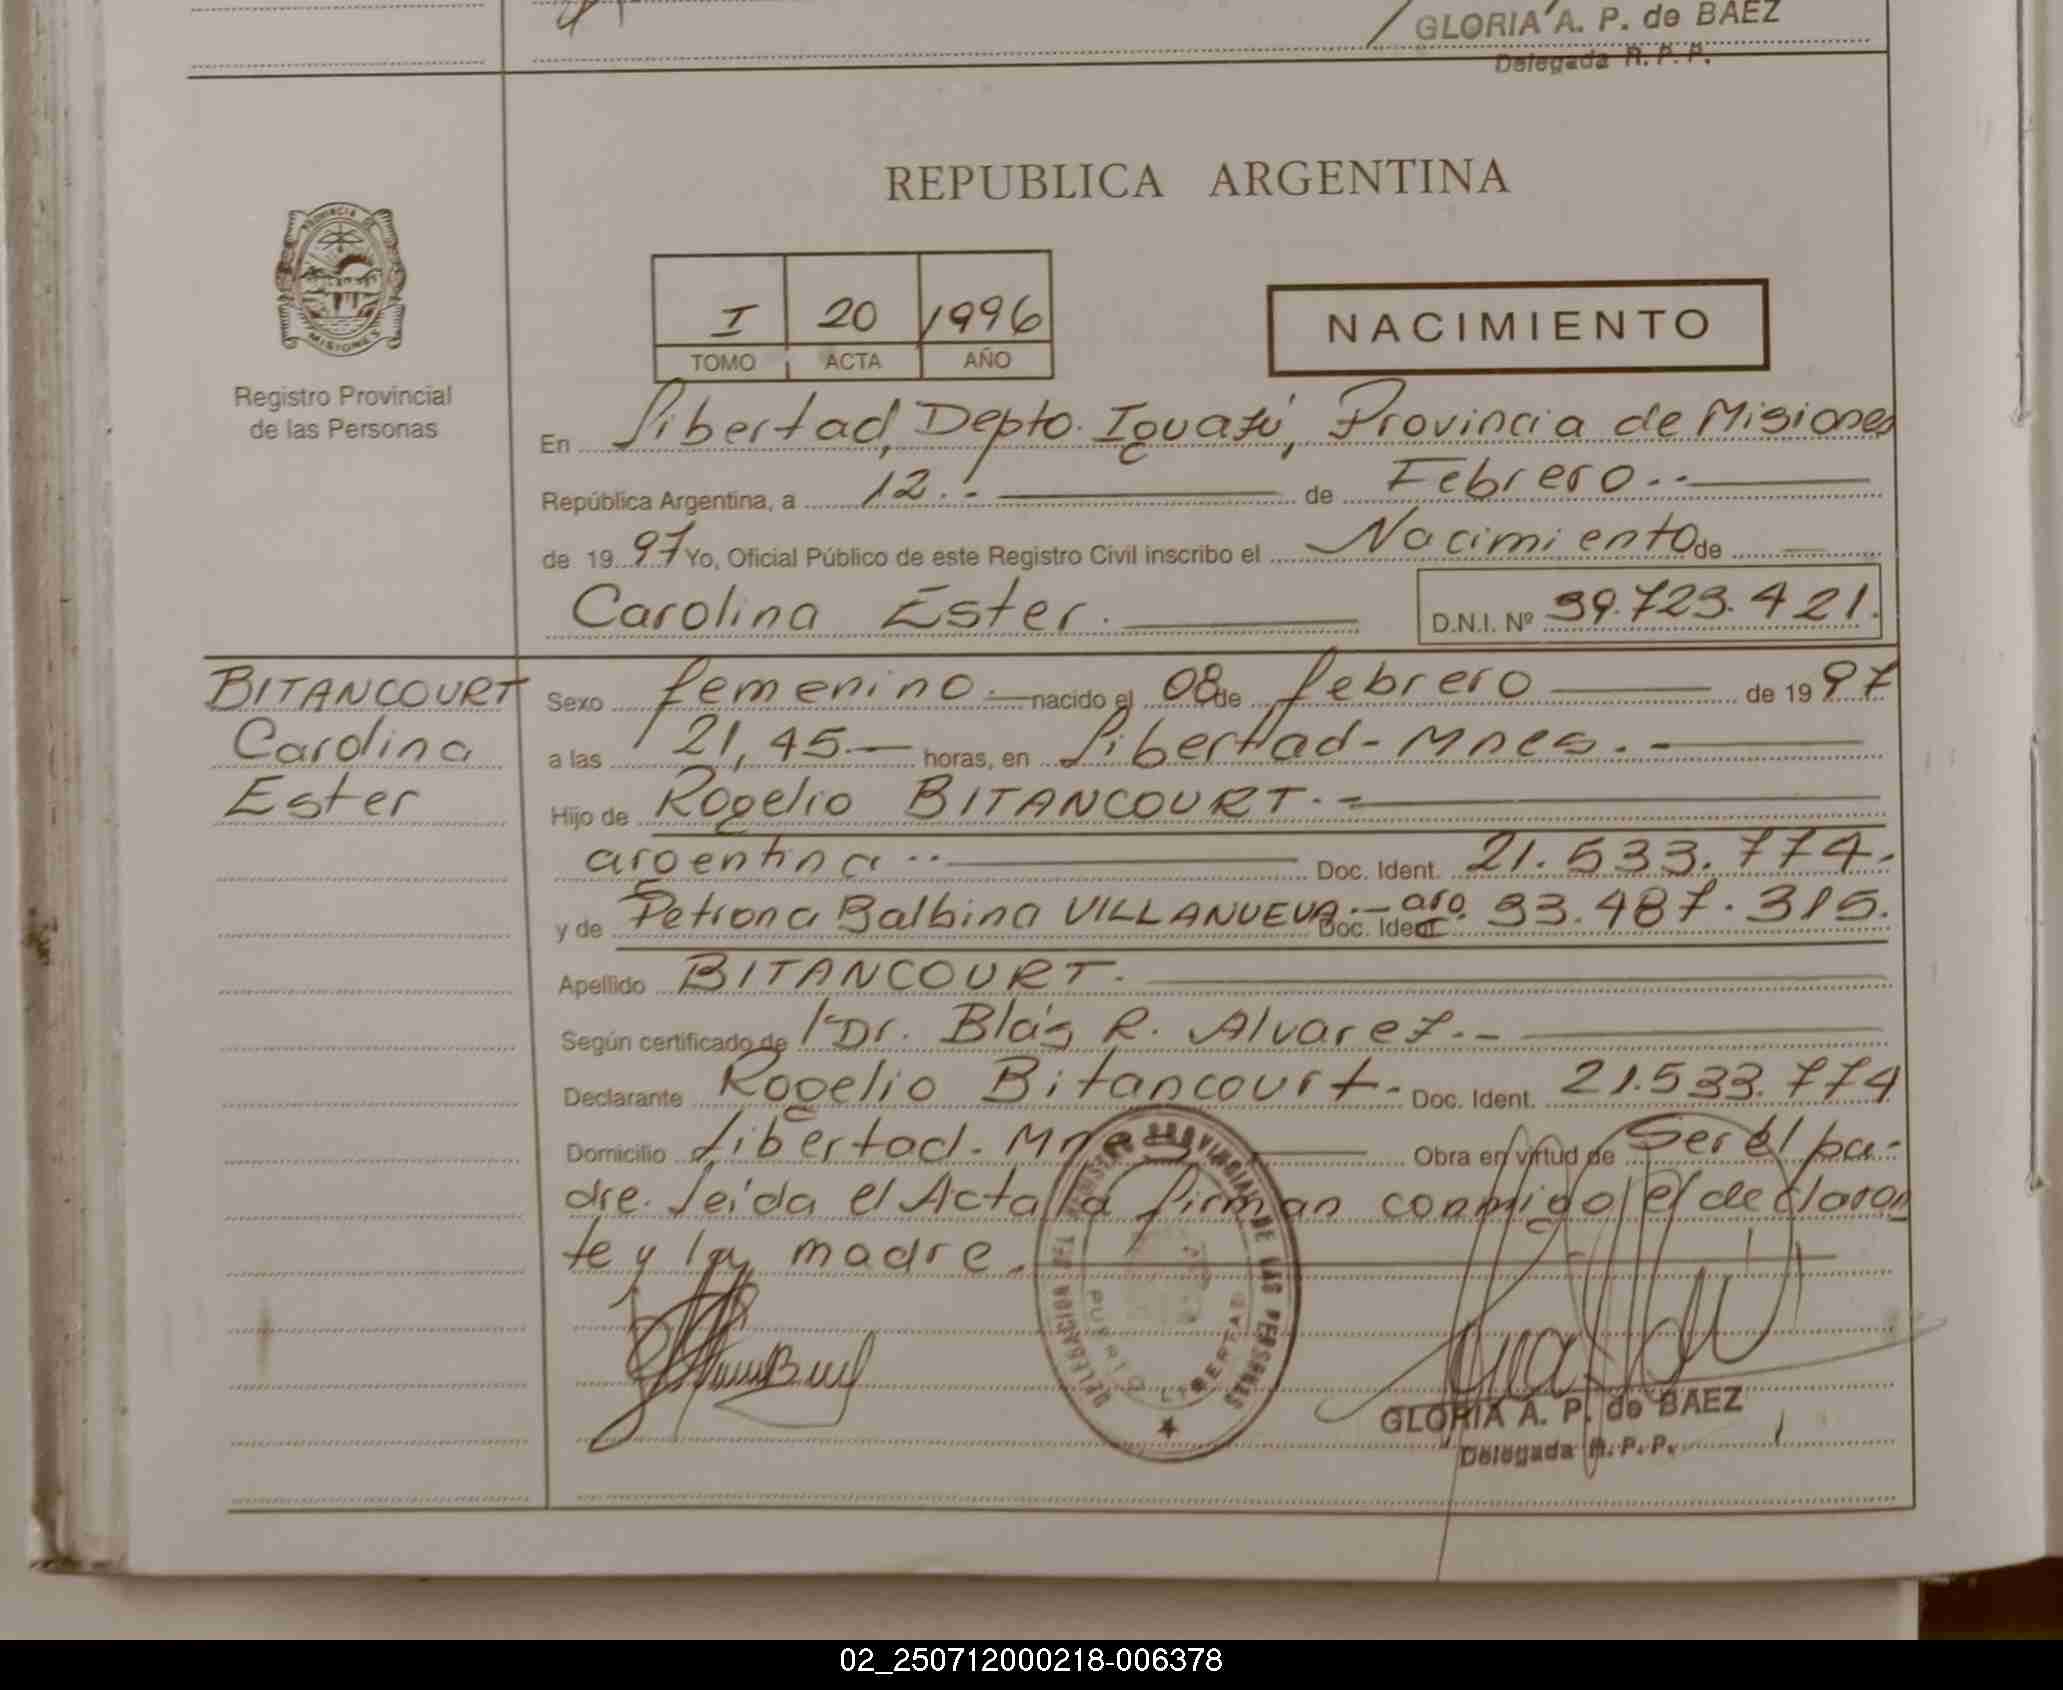 GLORIA A. P. de BAEZ
Delegada R. P. P.
REPUBLICA ARGENTINA
PROVINCIA DE
MISIONES
Registro Provincial
de las Personas
I 20 1996
TOMO ACTA AÑO
NACIMIENTO
En Libertad, Depto. Iguazú, Provincia de Misiones
República Argentina, a 12.- de Febrero.-
de 19 97 Yo, Oficial Público de este Registro Civil inscribo el Nacimiento de
Carolina Ester. D.N.I. Nº 39.723.421.
BITANCOURT
Carolina
Ester
Sexo femenino.- nacido el 08 de febrero de 19 97
a las 21,45 horas, en Libertad-Mnes.-
Hijo de Rogelio BITANCOURT.-
argentina.- Doc. Ident. 21.533.774.
y de Petrona Balbina VILLANUEVA.- arg. Doc. Ident. 93.487.315.
Apellido BITANCOURT.
Según certificado de Dr. Blás R. Alvarez.-
Declarante Rogelio Bitancourt.- Doc. Ident. 21.533.774
Domicilio Libertad-Mnes Obra en virtud de Ser el pa-
dre. Leída el Acta la firman conmigo el declaran
te y la madre.
REGISTRO PROVINCIAL DE LAS PERSONAS
DELEGACION
PUERTO LIBERTAD
GLORIA A. P. de BAEZ
Delegada R. P. P.
02_250712000218-006378